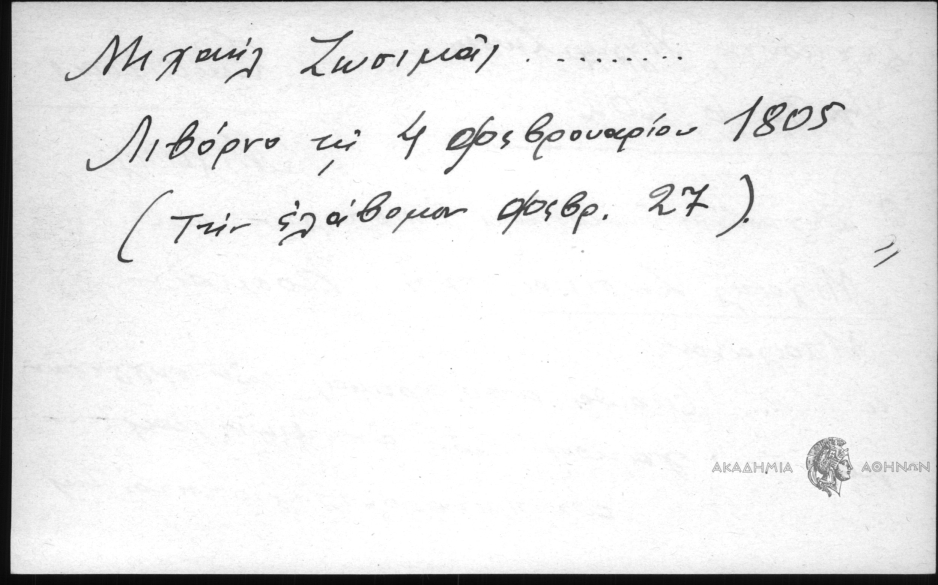 Μιχαήλ Ζωσιμᾶς ........
Λιβόρνο τῇ 4 φεβρουαρίου 1805
(τήν ἐλάβομεν φεβρ. 27).
ΑΚΑΔΗΜΙΑ ΑΘΗΝΩΝ